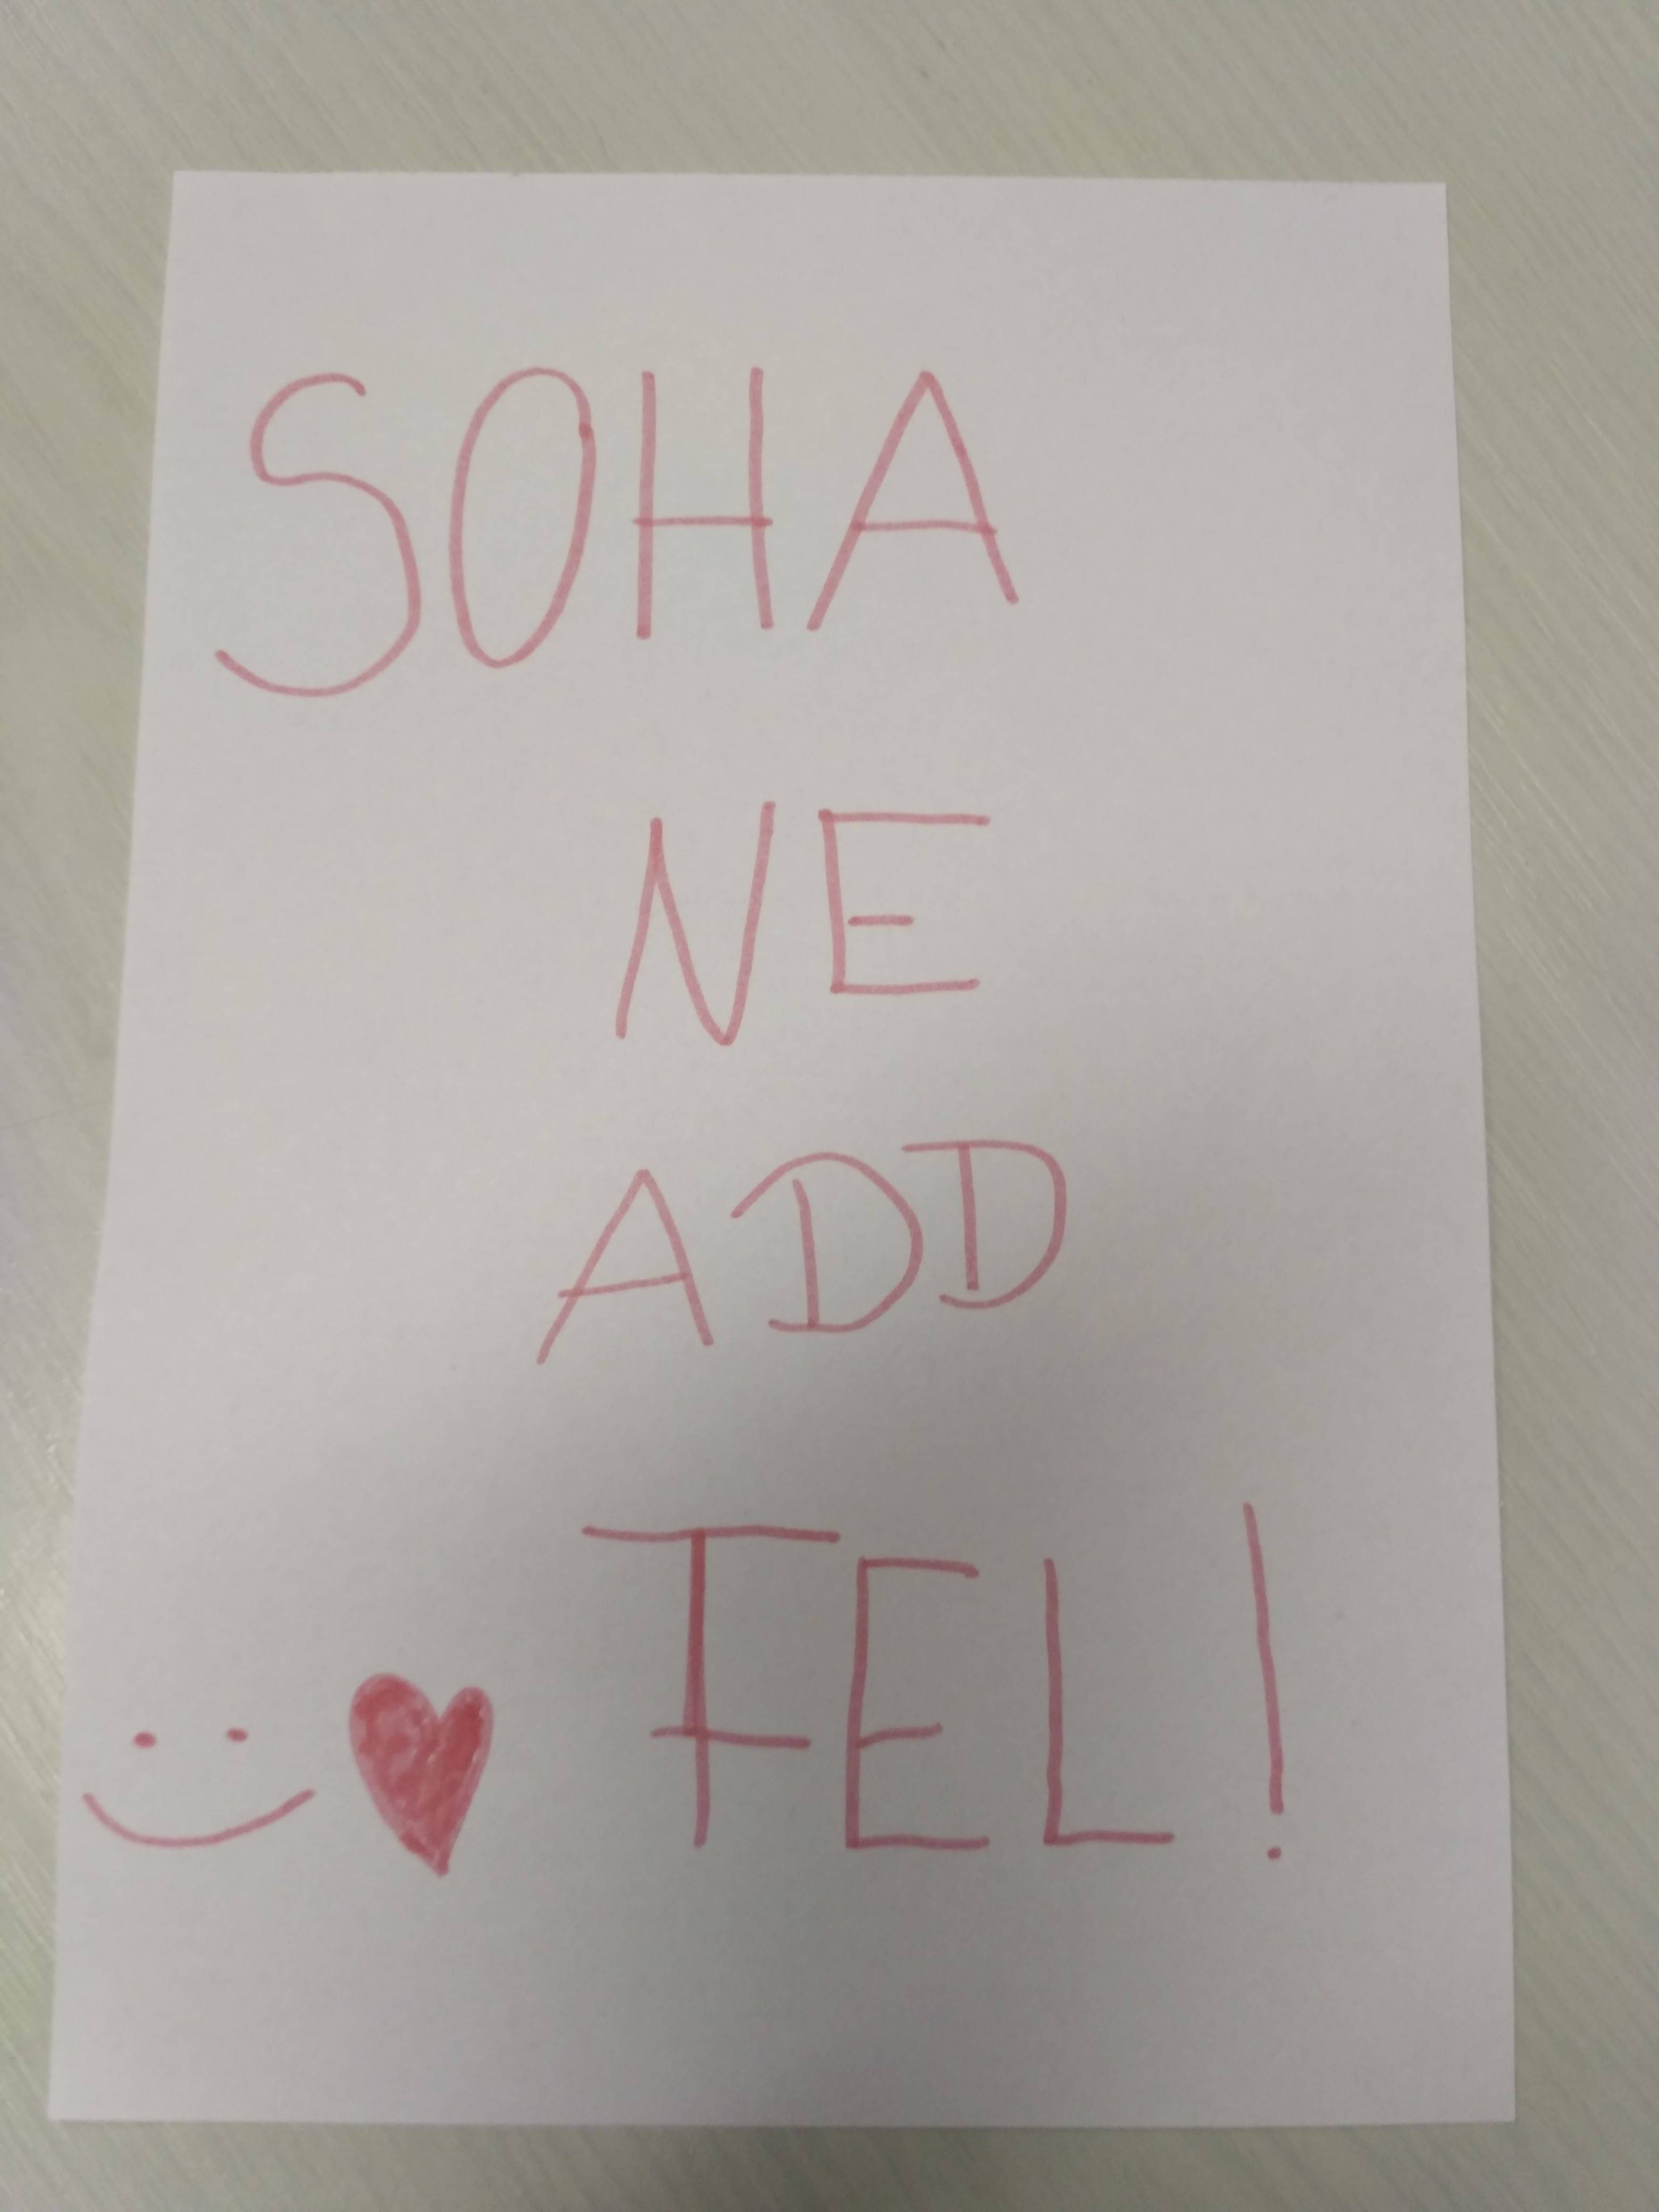 SOHA
NE
ADD
FEL!